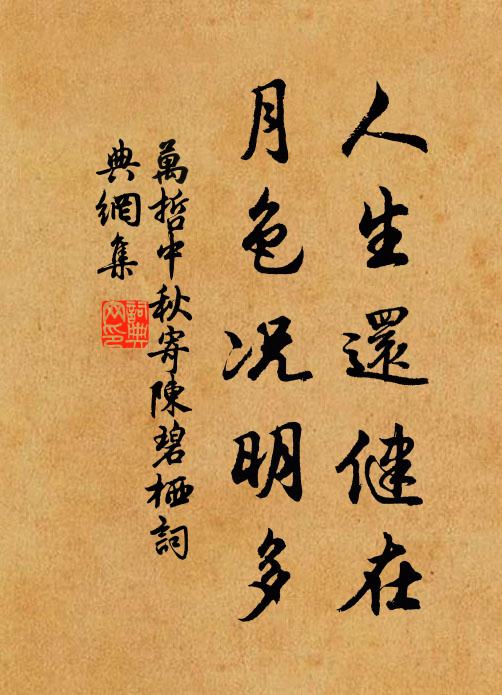 人生還健在
月色况明多
萬哲中秋寄陳碧栖詞
典網集
詞典
网印